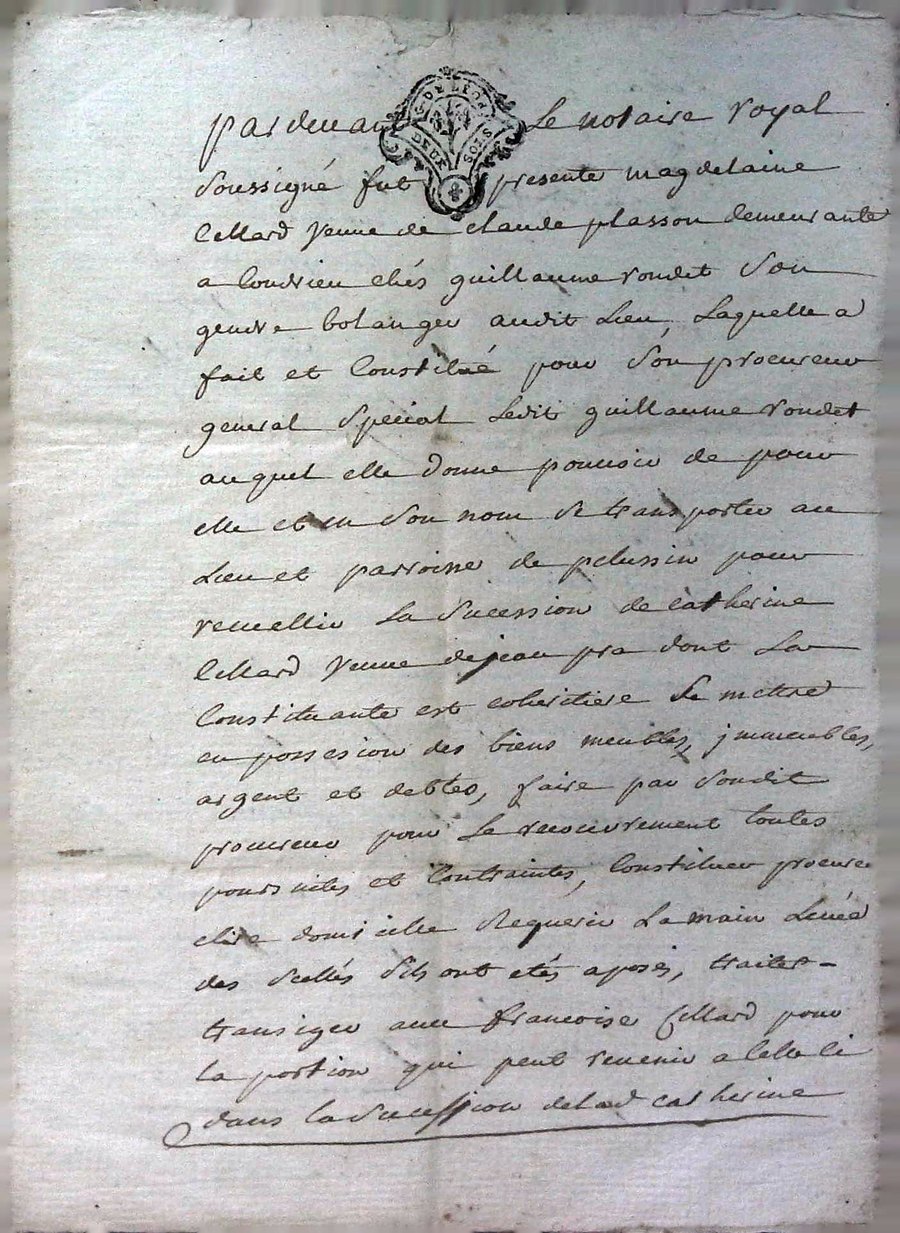 G. DE LYON
DEUX SOLS
pardevant Le notaire royal
Soussigné fut presente magdelaine
Cellard veuve de claude plasson demeurante
a Condrieu chés guillaume rondet Son
gendre bolanger audit Lieu, Laquelle a
fait et Constitué pour Son procureur
general Special Ledit guillaume rondet
auquel elle donne pouvoir de pour
elle et en Son nom Se transporter au
Lieu et parroisse de pelussin pour
recuellir La Sucession de catherine
Cellard veuve de jean pra dont La
Constituante est coheritiere Se mettre
en possesion des biens meubles, jmmeubles,
argent et debtes, faire par Sondit
procureur pour Le recouvrement toutes
poursuites et Contraintes, Constituer procure
elire domicille Requerir La main Levée
des Scellés S'ils ont etés aposés, traiter
transiger avec francoise Cellard pour
La portion qui peut revenir a Celle Ci
dans la Sucession de lad catherine